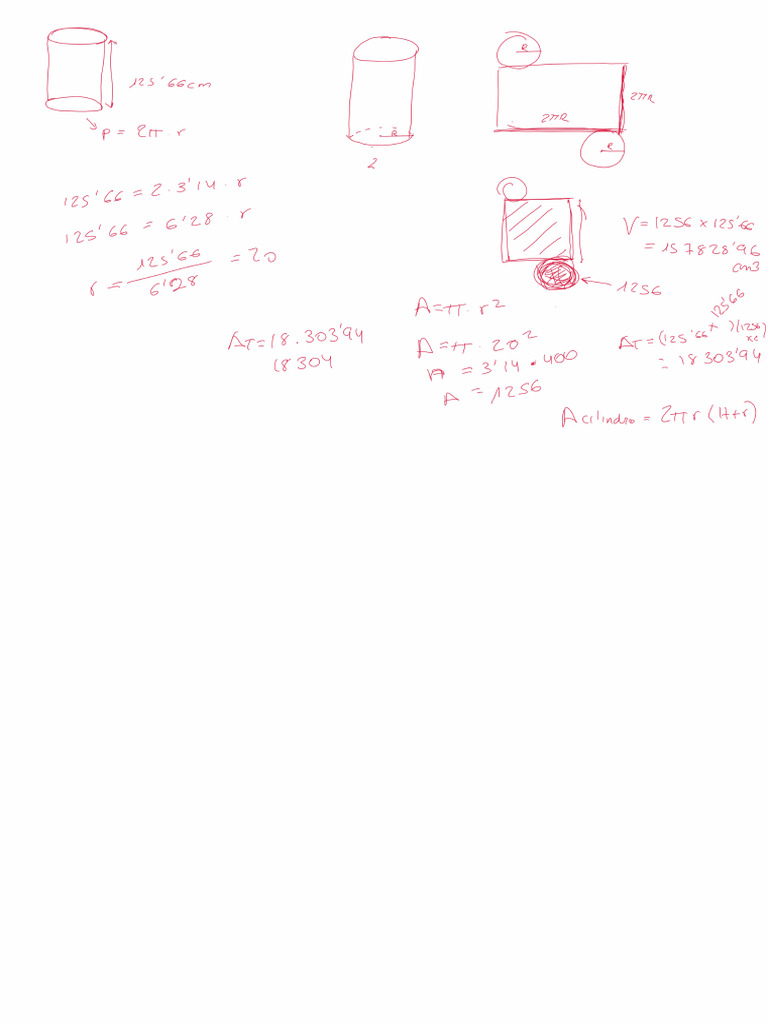 125'66cm
P = 2π · r
125'66 = 2 · 3'14 · r
125'66 = 6'28 · r
r = 125'66 / 6'28 = 20
R
2
R
2πR
2πR
R
V = 1256 x 125'66
= 157828'96
cm3
1256
A = π · r²
A = π · 20²
A = 3'14 · 400
A = 1256
AT = 18.303'94
18304
125'66
AT = (125'66 x )(1256
x2)
= 18303'94
A cilindro = 2πr (H+r)